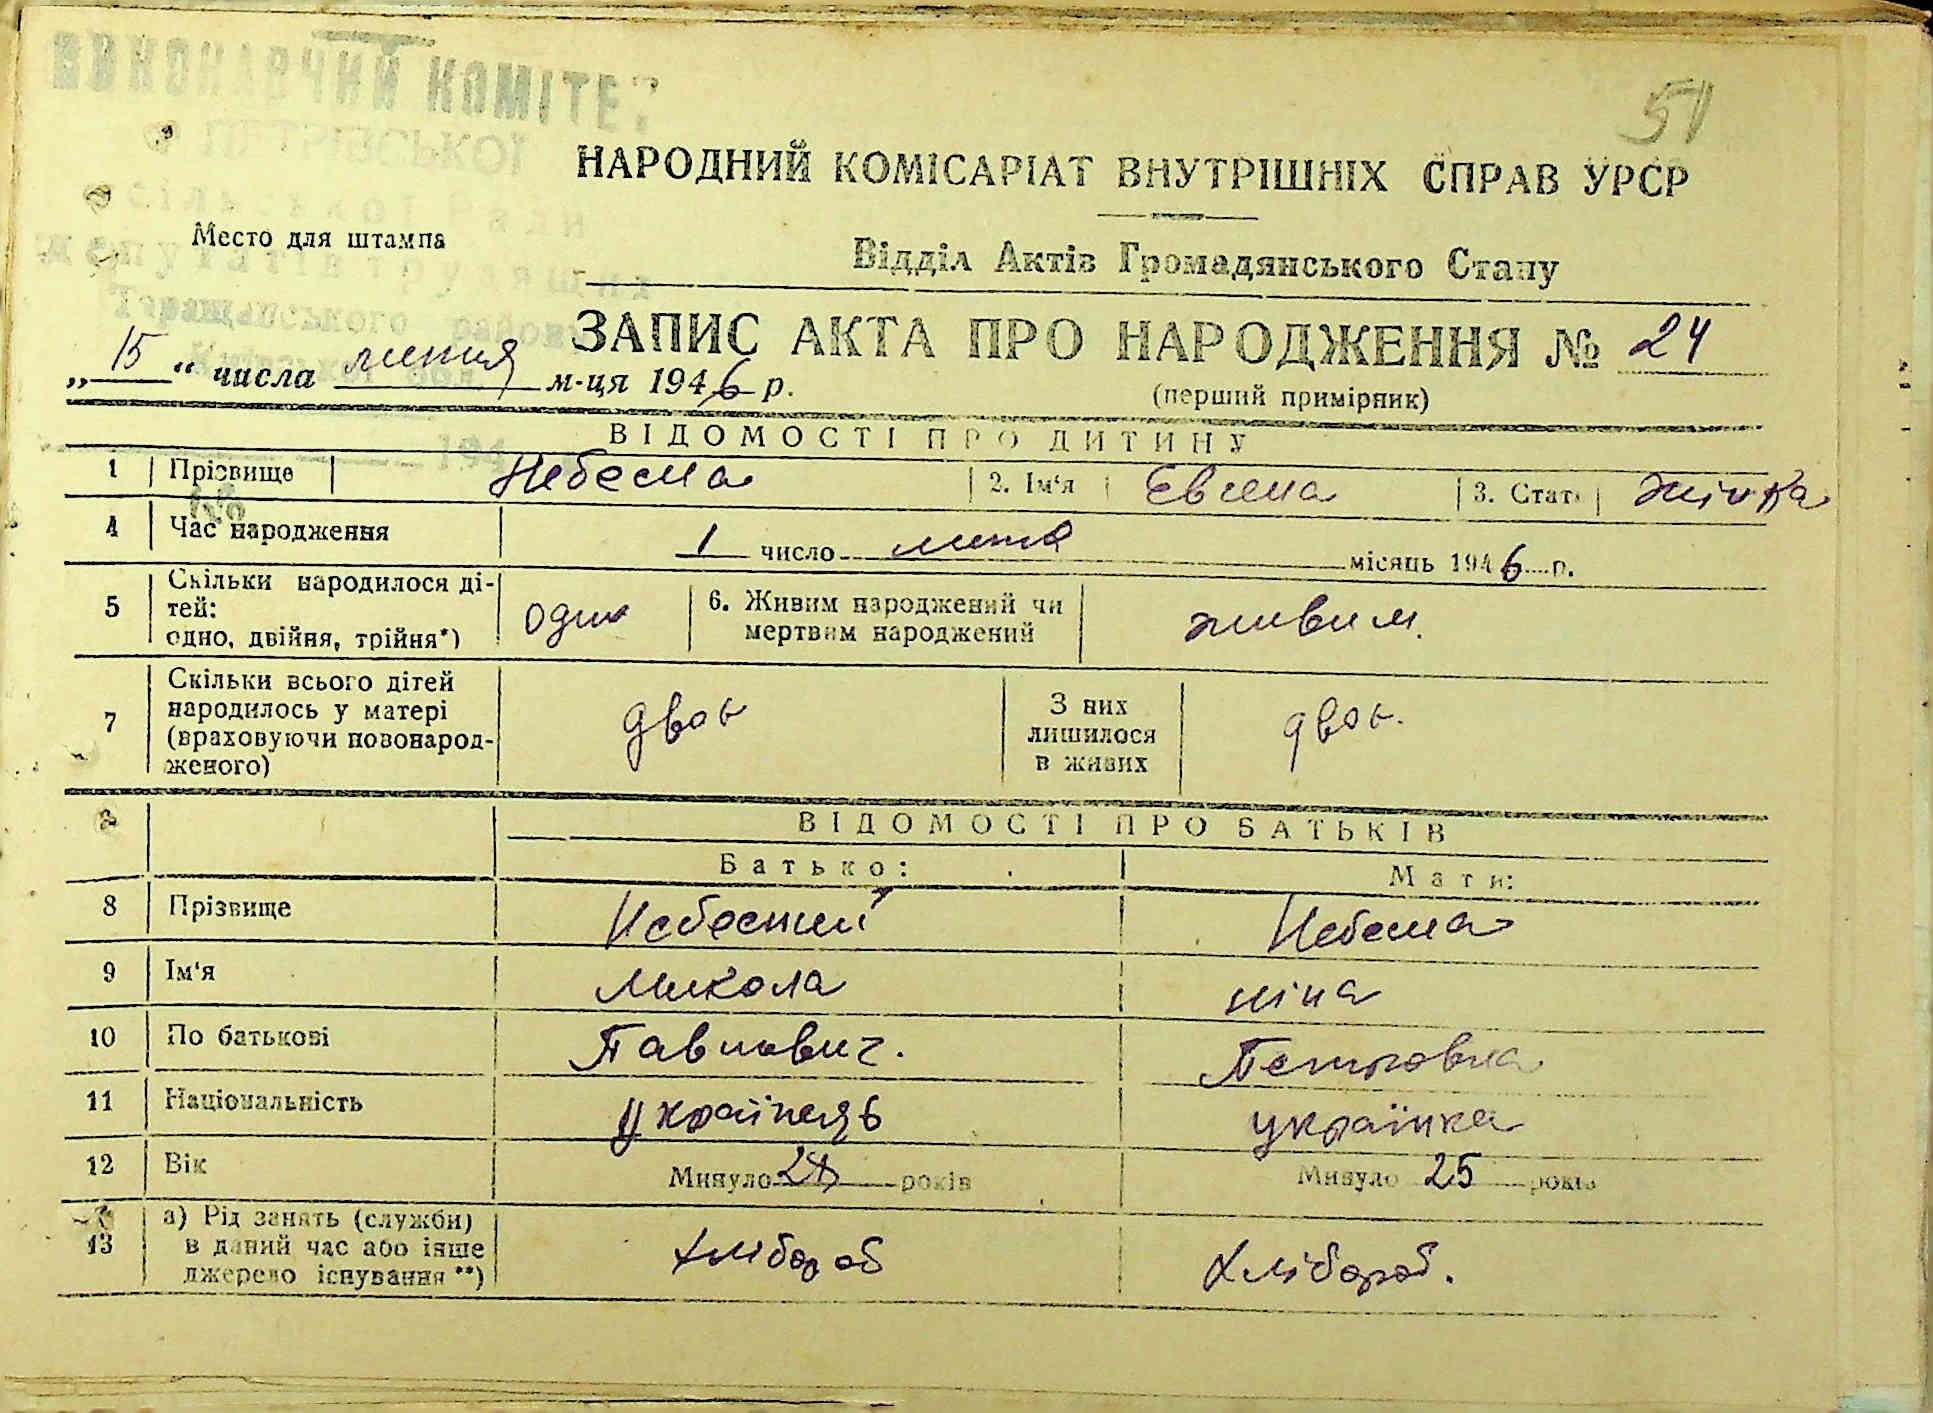 ВИКОНАВЧИЙ КОМІТЕТ
ПЕТРІВСЬКОЇ
сільської Ради
депутатів трудящих
Таращанського району
51
НАРОДНИЙ КОМІСАРІАТ ВНУТРІШНІХ СПРАВ УРСР
Место для штампа
Відділ Актів Громадянського Стану
ЗАПИС АКТА ПРО НАРОДЖЕННЯ № 24
„ 15 “ числа липня м-ця 1946 р.
(перший примірник)
ВІДОМОСТІ ПРО ДИТИНУ
1 Прізвище Небесна 2. Ім‘я Євгена 3. Стать жінка
4 Час народження 1 число липня місяць 1946 р.
5 Скільки народилося ді-
тей:
одно, двійня, трійня*) одно 6. Живим народжений чи
мертвим народжений живим.
7 Скільки всього дітей
народилось у матері
(враховуючи новонарод-
женого) двоє З них
лишилося
в живих двоє.
ВІДОМОСТІ ПРО БАТЬКІВ
Батько: Мати:
8 Прізвище Небесний Небесна
9 Ім‘я Микола ніна
10 По батькові Павлович. Петровна
11 Національність українець українка
12 Вік Минуло років Минуло 25 років
13 а) Рід занять (служби)
в даний час або інше
джерело існування **) хлібороб хлібороб.